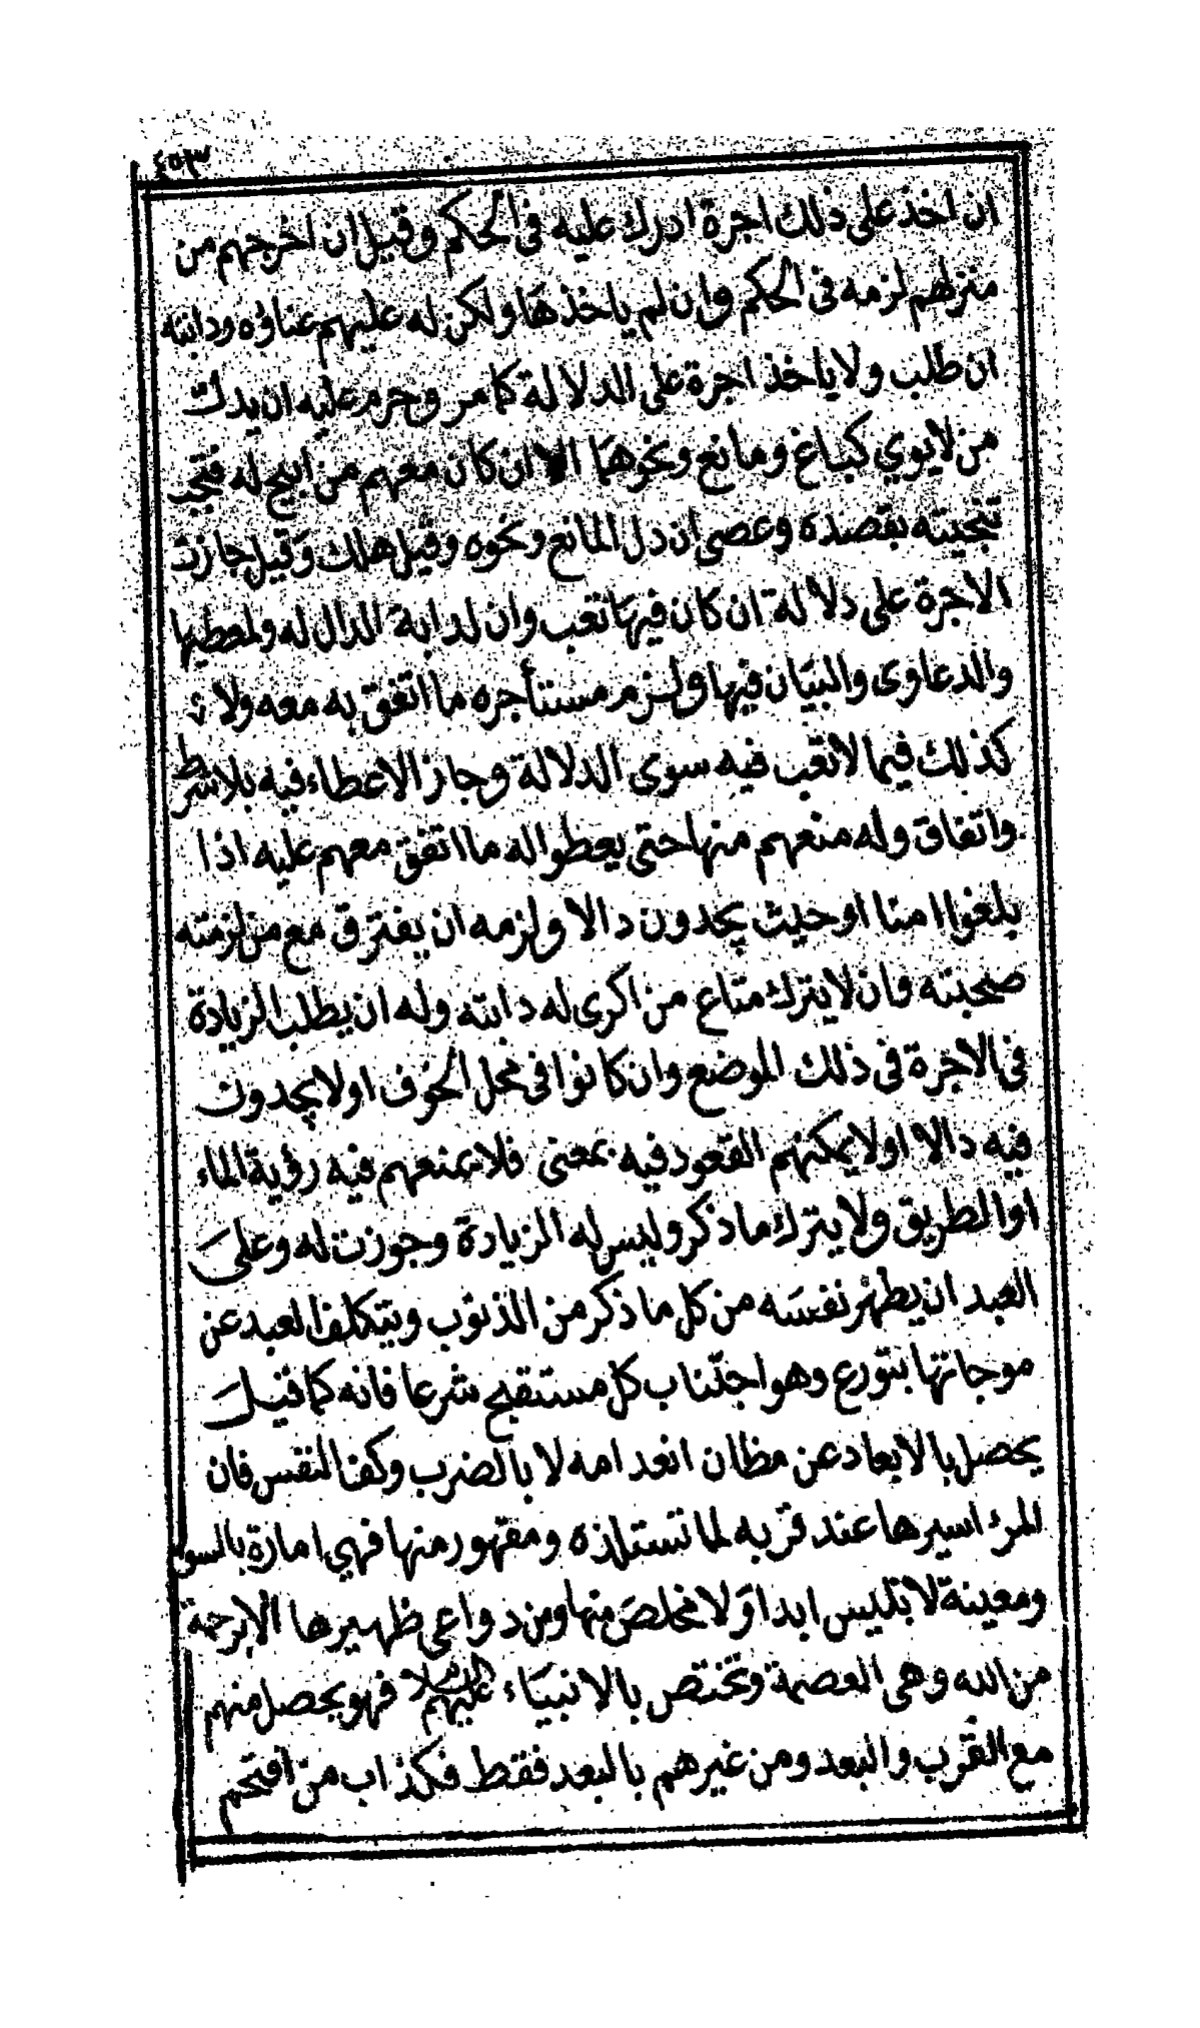 ٤٥٣
ان اخذ على ذلك اجرة ادرك عليه فى الحكم وقيل ان اخرجهم من
منزلهم لزمه فى الحكم وان لم ياخذها ولكن له عليهم عناؤه ودابته
ان طلب ولا ياخذ اجرة على الدلالة كما مر وحرم عليه ان يدل
من لا يوي كباغ ومانع ونحوهما الا ان كان معهم من ابيح له فتجب
تنجيته بقصده وعصى ان دل المانع ونحوه وقيل هلك وقيل جازت
الاجرة على دلالة ان كان فيها تعب وان لدابة الدال له ولمعطيها
والدعاوى والبيان فيها ولزم مستأجره ما اتفق به معه ولا
كذلك فيما لا تعب فيه سوى الدلالة وجاز الاعطاء فيه بلا شرط
واتفاق وله منعهم منها حتى يعطوا له ما اتفق معهم عليه اذا
بلغوا امنا او حيث يجدون دالا ولزمه ان يفترق مع من لزمته
صحبته وان لا يترك متاع من اكرى له دابته وله ان يطلب الزيادة
فى الاجرة فى ذلك الموضع وان كانوا فى محل الخوف او لا يجدون
فيه دالا او لا يمكنهم القعود فيه بمعنى فلا يمنعهم فيه رؤية الماء
او الطريق ولا يترك ما ذكر وليس له الزيادة وجوزت له وعلى
العبد ان يطهر نفسه من كل ما ذكر من الذنوب ويتكلف العبد عن
موجباتها بتورع وهو اجتناب كل مستقبح شرعا فانه كما قيل
يحصل بالابعاد عن مظان انعدامه لا بالضرب وكف النفس فان
المرء اسيرها عند قربه لما تستلذه ومقهور منها فهي امارة بالسو
ومعينة لابليس ابدا ولا مخلص منها ومن دواعى ظهيرها الا برحمة
من الله وهى العصمة وتختص بالانبياء عليهم السلام فهو يحصل منهم
مع القرب والبعد ومن غيرهم بالبعد فقط فكذاب من اقتحم